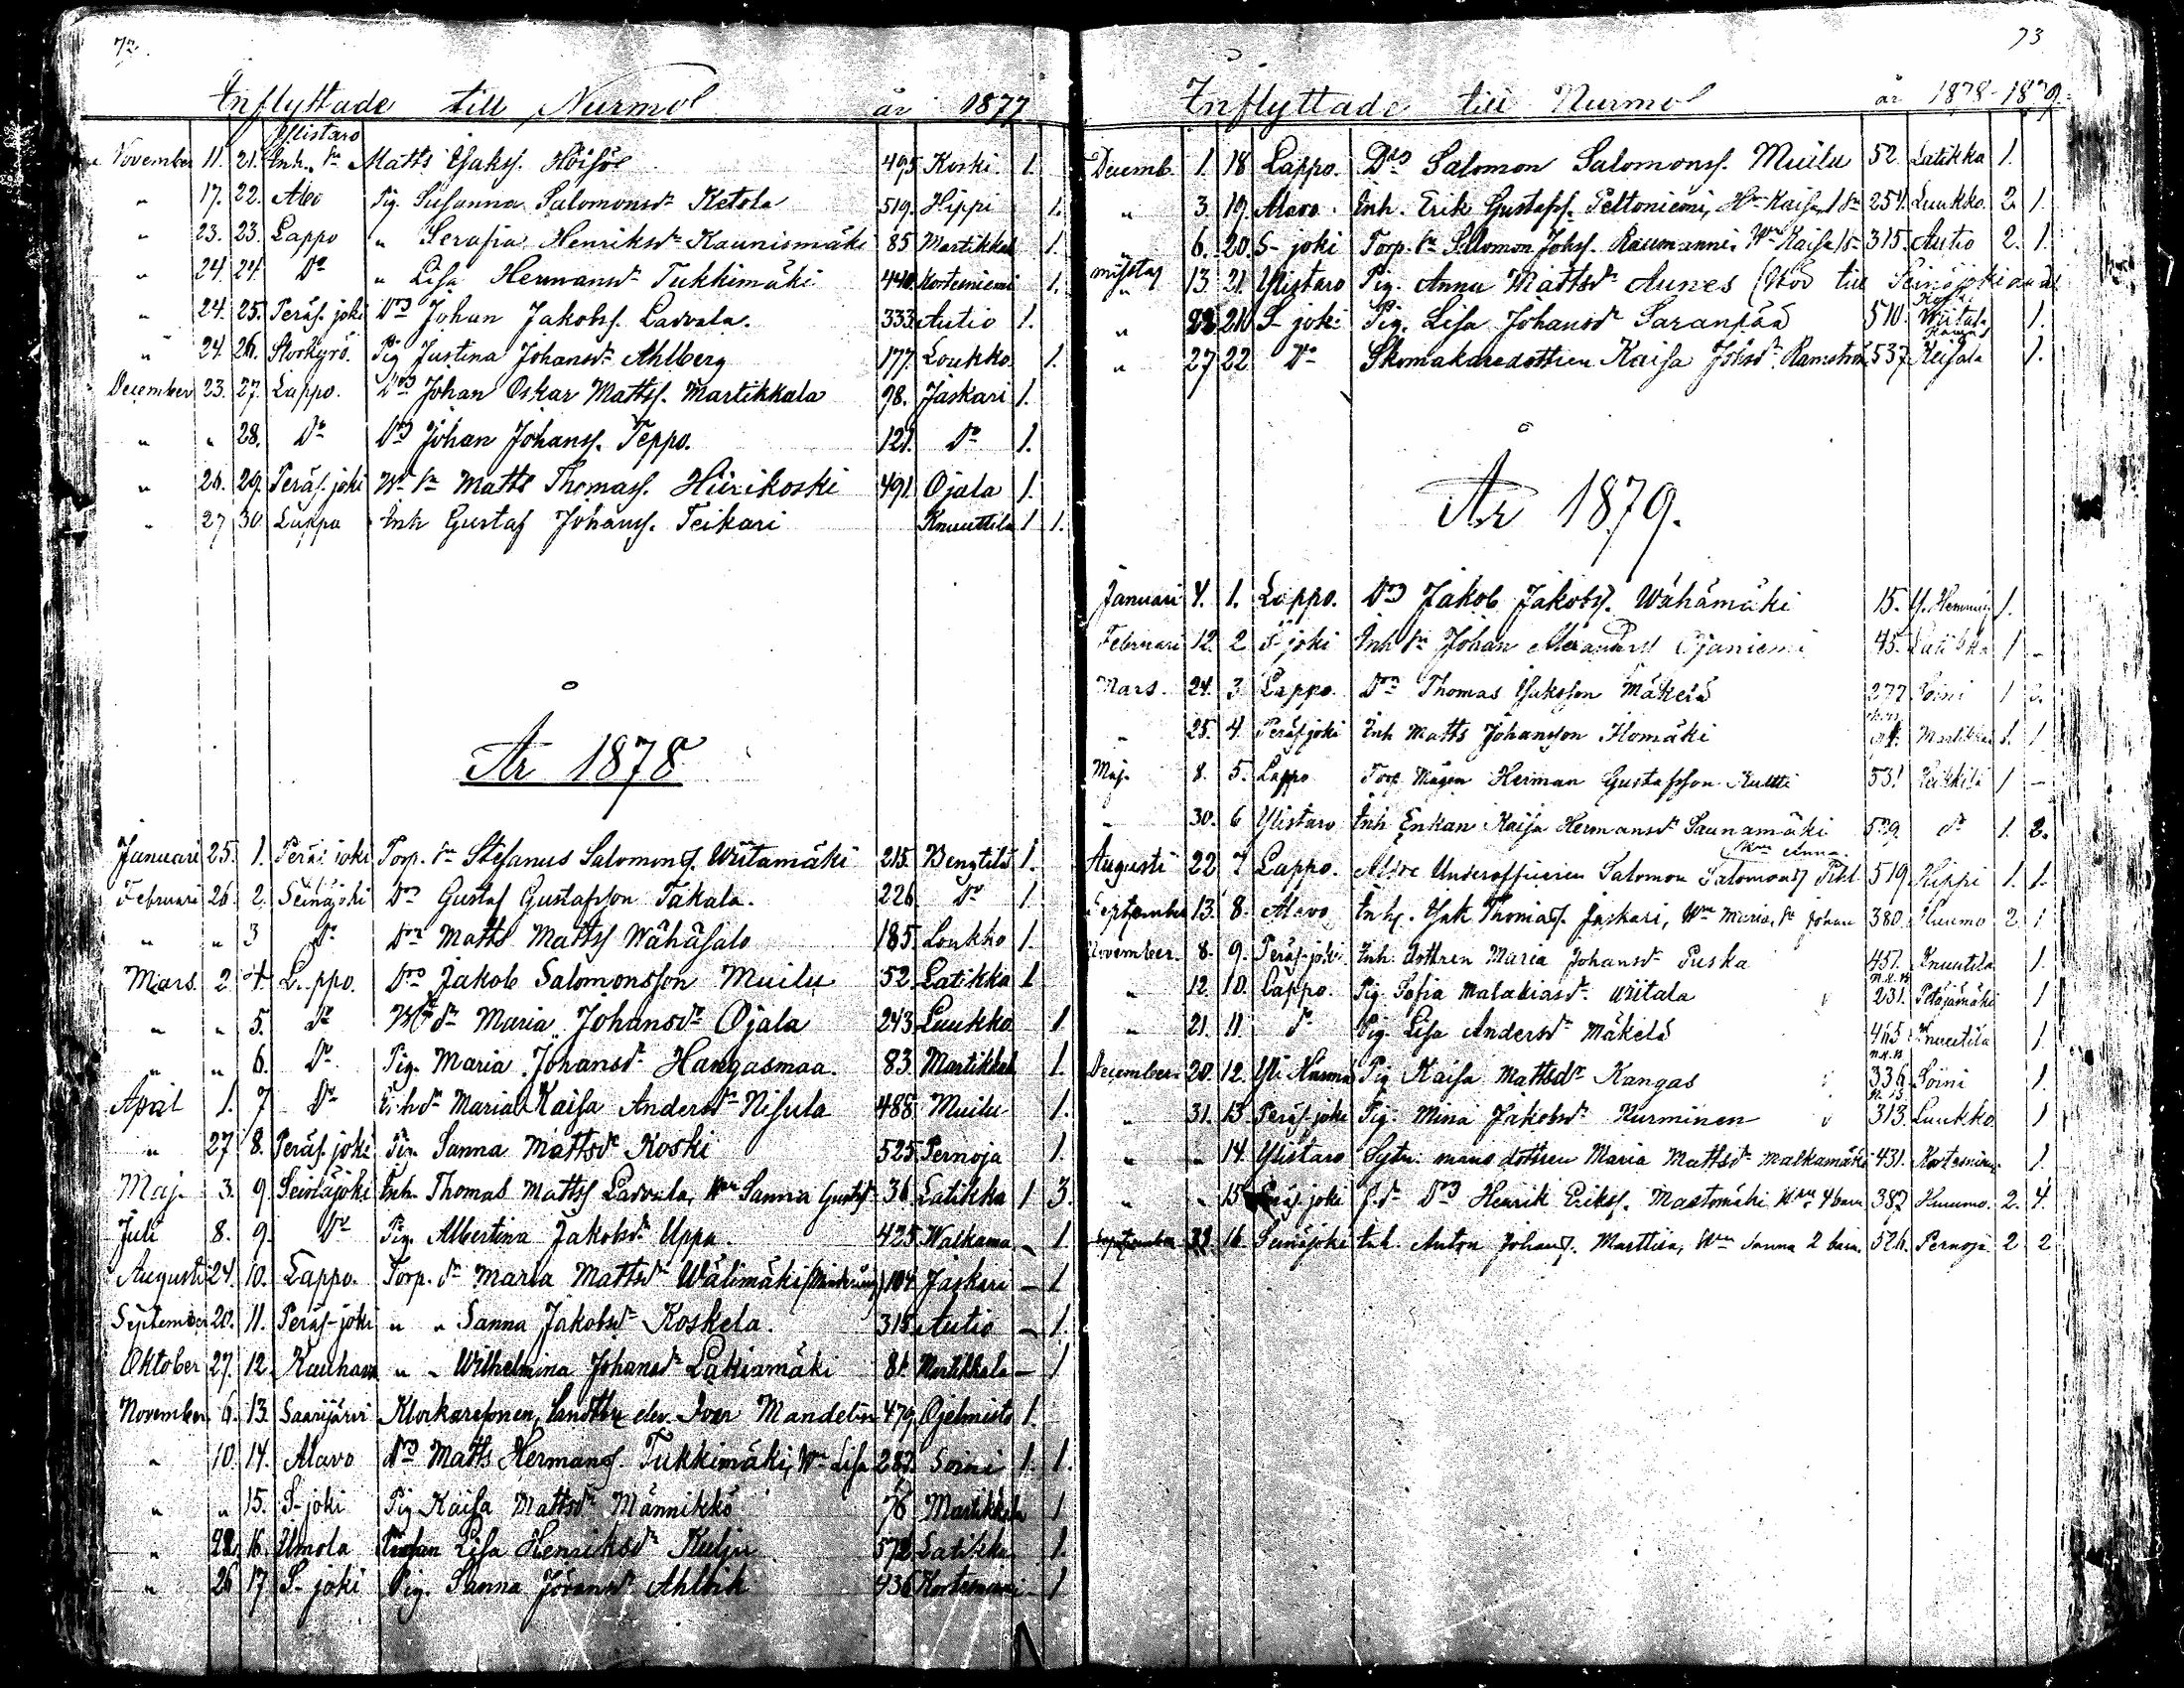 72.
Inflyttade till Nurmo år 1877
Ylistaro
November 11. 21. Inh. Sn Matts Isaks. Höisjö 495 Koski 1.
" 17. 22. Alavo Pig. Susanna Salomonsdr Ketola 519. Hippi 1.
" 23. 23. Lappo " Serafia Henriksdr Kaunismäki 85 Martikkala 1.
" 24. 24. Do " Lisa Hermansdr Tukkimäki 440. Kortesniemi 1.
" 24. 25. Peräs. joki Drg Johan Jakobss. Ladvala. 333. Autio 1.
" 24. 26. Storkyro. Pig Justina Johansdr Ahlberg 177. Loukko. 1.
December 23. 27. Lappo. Drg Johan Oskar Mattss. Martikkala 98. Jaskari 1.
" " 28. Do Drg Johan Johanss. Teppo. 121. Do 1.
" 26. 29. Peräs. joki Matts Thomass. Hiirikoski 491. Ojala 1.
" 27 30 Lappo Inh Gustaf Johanss. Teikari Knuuttila 1 1.
År 1878
Januari 25. 1. Peräs. joki Torp. Sn Stefanus Salomonss. Wiitamäki 215. Bengtilä 1.
Februari 26 2. Seinäjoki Drg Gustaf Gustafsson Takala. 226 Do 1.
" " 3 Do Drg Matts Mattss Wähäsalo 185. Loukko 1.
Mars. 2 4. Lappo. Drg Jakob Salomonsson Muilu 52. Latikka 1
" " 5. Do Maria Johansdr Ojala 243. Luukko 1.
" " 6. Do Pig. Maria Johansdr Hangasmaa. 83. Martikkala 1.
April 1. 7 Do Maria Kaisa Andersdr Nisula 488. Muilu 1.
" 27 8. Peräs. joki Pig. Sanna Mattsdr Koski 525. Pernoja 1.
Maj 3. 9 Seinäjoki Inh. Thomas Mattss Ladvala, Wm Sanna Gustdr 36 Latikka 1 3.
Juli 8. 9. Do Pig. Albertina Jakobsdr Uppa. 425. Walkama - 1
Augusti 24. 10. Lappo. Torp. dr Maria Mattsdr Wälimäki 104. Jaskari - 1
September 20. 11. Peräs-joki " " Sanna Jakobsdr Koskela. 315. Autio - 1.
Oktober 27. 12. Kauhava " " Wilhelmina Johansdr Lakiamäki 81. Martikkala - 1
November 6. 13. Saarijärvi Klockaresonen, Mandelin 479. Ojelmisto 1.
" 10. 14. Alavo Drg Matts Hermanss. Tukkimäki, Wm Lisa 287. Soini 1. 1.
" " 15. S-joki Pig Kaisa Mattsdr Männikkö 76 Martikkala 1
" 22. 16. Lisa Henriksdr Kulju 572. Latikka 1.
" 26 17 S-joki Pig. Sanna Johansdr 436 Kortesniemi - 1
73
Inflyttade till Nurmo år 1878-1879.
Decemb. 1. 18 Lappo. Drg Salomon Salomonss. Muilu 52. Latikka 1.
" 3. 19. Alavo. Inh. Erik Gustafss. Peltoniemi, Wm Kaisa, 1 Sn 254. Luukko. 2. 1.
" 6. 20. S-joki Torp. Sn Salomon Johss. Raumanni, Wm Kaisa 315. Autio 2. 1.
misstag " 13 21. Ylistaro Pig. Anna Mattsdr Aunes
" 22 21. S-joki Pig. Lisa Johansdr Saranpää 510. Wiitala 1.
" 27 22 Do Skomakaredottren Kaisa Johsdr Ramström 537 Keisala 1.
År 1879.
Januari 4. 1. Lappo. Drg Jakob Jakobss. Wähämäki 15. Y. Hemming 1.
Februari 12. 2 S-joki Inh Sn Johan Alexanders Ojaniemi 45. Latikka 1 -
Mars. 24. 3 Lappo. Drg Thomas Isaksson Mäkelä 277 Soini 1 3.
" 25. 4. Peräs-joki Inh Matts Johansson Homäki Martikkala 1. 1
Maj. 8. 5. Lappo Torp. Mågen Herman Gustafsson Kultti 531 Heikkilä 1 -
" 30. 6 Ylistaro Inh. Enkan Kaisa Hermansdr Saunamäki 529. Do 1. 2.
Hm Anna.
Augusti 22 7 Lappo. Underofficeren Salomon Salomonss Pihl 519 Hippi 1. 1.
September 13. 8. Alavo Inh. Isak Thomass. Jaskari, Wm Maria, Sn Johan 380. Huumo 2 1
November. 8. 9. Peräs-joki Inh. dottren Maria Johansdr Puska 457. Knuutila 1.
" 12. 10. Lappo. Pig. Sofia Malakiasdr Wiitala 231. Petäjämäki 1
" 21. 11. Do Pig. Lisa Andersdr Mäkelä 465. Knuutila 1.
December. 20. 12. Yli Härmä Pig Kaisa Mattsdr Kangas 336 Soini 1.
" 31. 13 Peräs-joki Pig. Mina Jakobsdr Kurminen 313. Luukko. 1
" " 14. Ylistaro Maria Mattsdr Walkamäki 431. Kortesniemi 1.
" " 15 Peräs. joki Drg Henrik Erikss. Maatomäki Wm 4 barn 382 Huumo. 2. 4.
September 22. 16. Seinäjoki Inh. Anton Johanss. Marttila, Wm Sanna 2 barn. 526. Pernoja 2 2